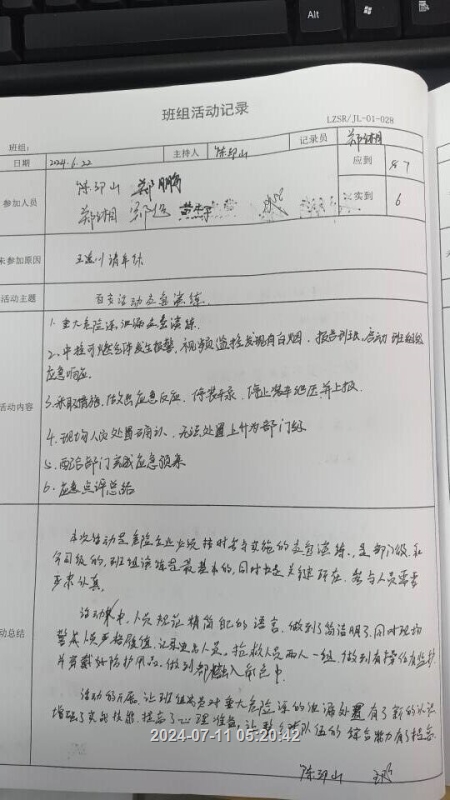 Alt
班组活动记录
LZSR/JL-01-028
班组：
日期 2024.6.22 主持人 陈卬山 记录员
应到 7
参加人员 陈卬山 郑鹏
实到 6
未参加原因 请年休
活动主题 演练
1、重大危险源泄漏应急演练。
2、中控可燃气体发生报警，视频监控发现有白烟，报告班长，启动班组级
应急响应。
3、采取措施，做出应急反应，停装车泵，停止装车泄压并上报。
4、现场人员处置确认，无法处置上升为部门级
活动内容
5、配合部门实施应急预案
6、应急点评总结
本次活动是危险企业必须按时去实施的应急演练，是部门级和
公司级的，班组演练是最基本的，同时也是关键所在，参与人员需要
严肃认真。
活动中，人员规范精简自己的语言，做到了简洁明了，同时现场
警戒人员严格履值，记录进出人员。抢救人员两人一组，做到有操作有监护
并穿戴好防护用品。做到都融入角色中
动总结
活动的开展，让班组成员对重大危险源的泄漏处置有了新的认识
增强了实战技能，提高了心理准备，让整个队伍的综合能力有了提高
2024-07-11 05:20:42
陈卬山